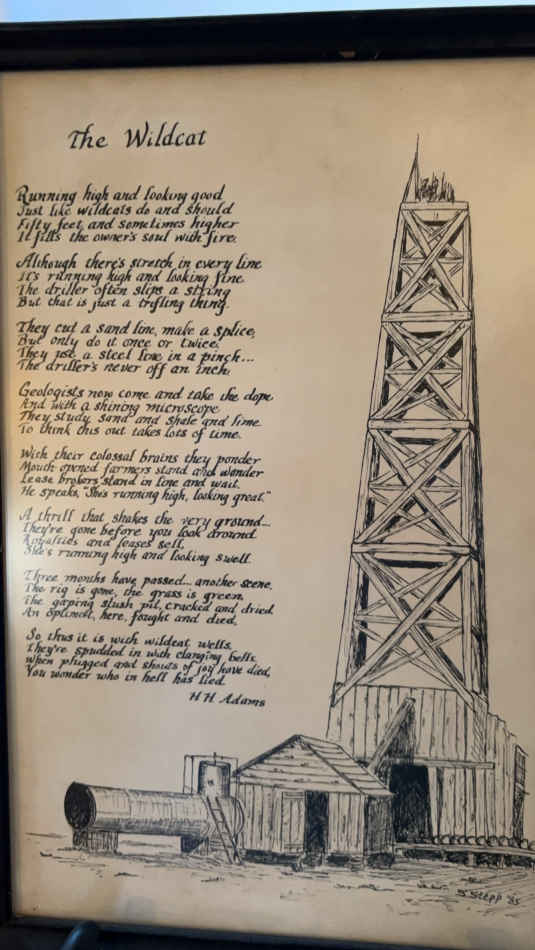 The Wildcat
Running high and looking good
Just like wildcats do and should
Fifty feet, and sometimes higher
It fills the owner's soul with fire.
Although there's stretch in every line
It's running high and looking fine.
The driller often slips a string
But that is just a trifling thing.
They cut a sand line, make a splice,
But only do it once or twice.
They use a steel line in a pinch...
The driller's never off an inch.
Geologists now come and take the dope
And with a shining microscope
They study sand and shale and lime
To think this out takes lots of time.
With their colossal brains they ponder
Mouth opened farmers stand and wonder
Lease brokers stand in line and wait.
He speaks, "She's running high, looking great."
A thrill that shakes the very ground...
They're gone before you look around.
Royalties and leases sell
She's running high and looking swell.
Three months have passed... another scene,
The rig is gone, the grass is green,
The gaping slush pit, cracked and dried
An optimist, here, fought and died.
So thus it is with wildcat wells
They're spudded in with clanging bells
When plugged and shouts of joy have died,
You wonder who in hell has lied.
H H Adams
S Stepp '85